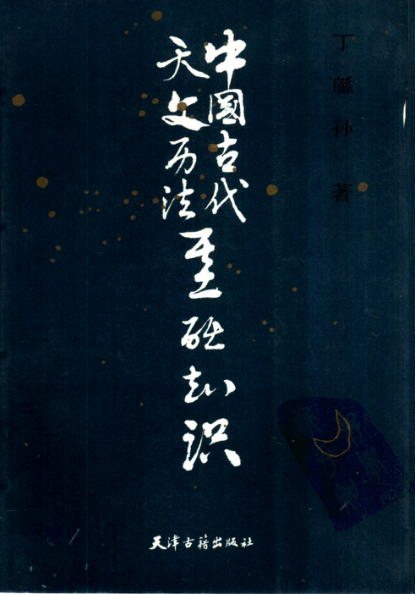 中國古代
天文历法
基础知识
丁緜孙 著
天津古籍出版社